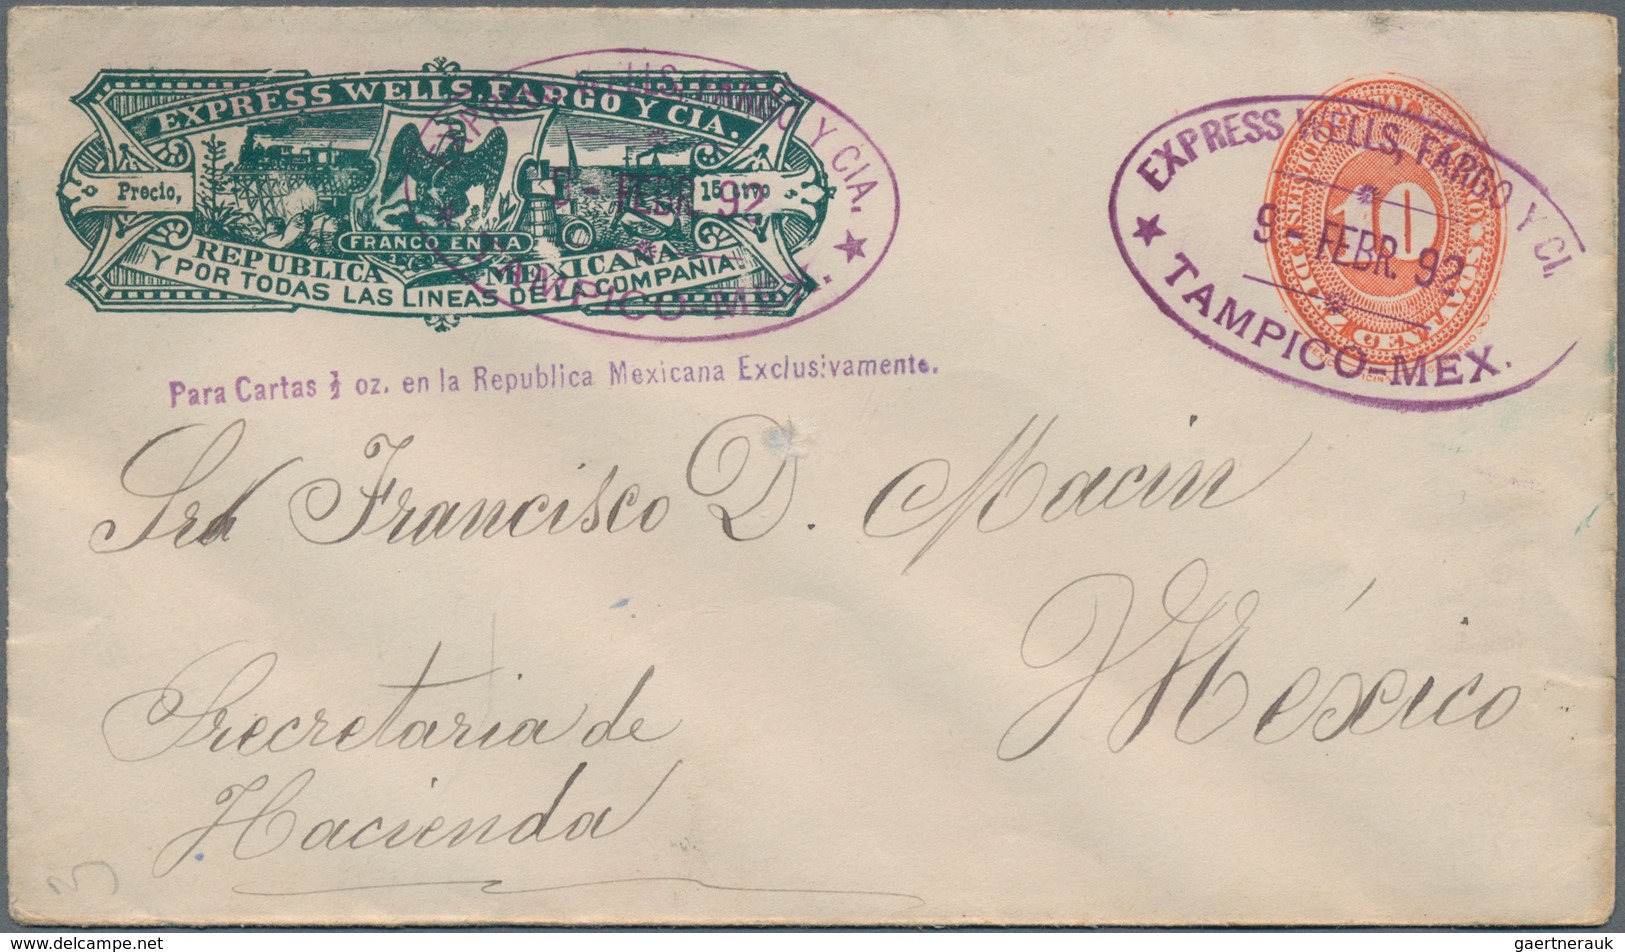 EXPRESS WELLS, FARGO Y CIA.
Precio,
15 Ctvo
FRANCO EN LA
REPUBLICA MEXICANA
Y POR TODAS LAS LINEAS DE LA COMPAÑIA.
EXPRESS WELLS, FARGO Y CIA.
9 - FEBR. 92
TAMPICO-MEX.
10
SERVICIO POSTAL MEXICANO
EXPRESS WELLS, FARGO Y CI.
9 - FEBR. 92
TAMPICO-MEX.
Para Cartas ½ oz. en la Republica Mexicana Exclusivamente.
Francisco D. Macin
México
Secretaria de
Hacienda
3
gaertnerauk
delcampe.net